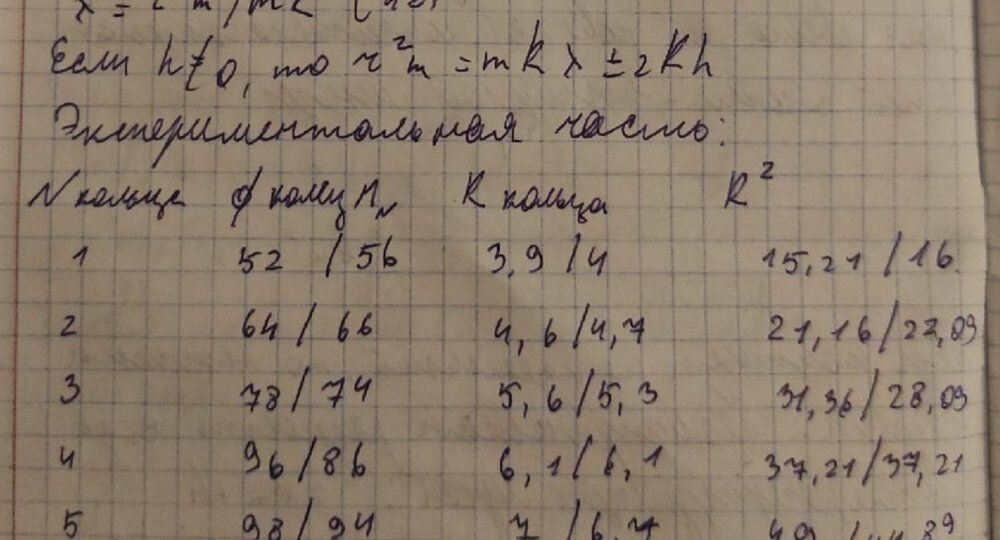 Если h≠0, то r²m = mRλ ± 2Rh
Экспериментальная часть:
N кольца ϕ колец Nn R кольца R²
1 52 / 56 3,9 / 4 15,21 / 16
2 64 / 66 4,6 / 4,7 21,16 / 22,09
3 78 / 74 5,6 / 5,3 31,36 / 28,09
4 96 / 86 6,1 / 6,1 37,21 / 37,21
5 98 / 94 7 / 6,7